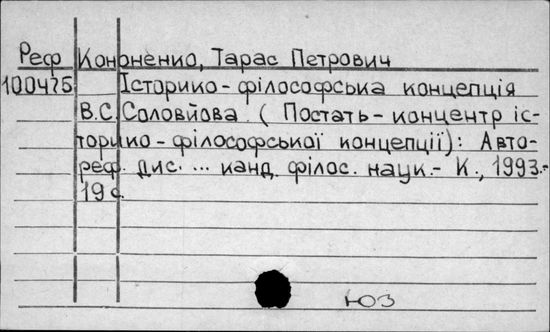 Реф Кононенко, Тарас Петрович
100475 Історико-філософська концепція
В.С. Соловйова. (Постать-концентр іс-
торико-філософської концепції): Авто-
реф. дис. ... канд. філос. наук.- К., 1993.-
19 с.
ЮЗ